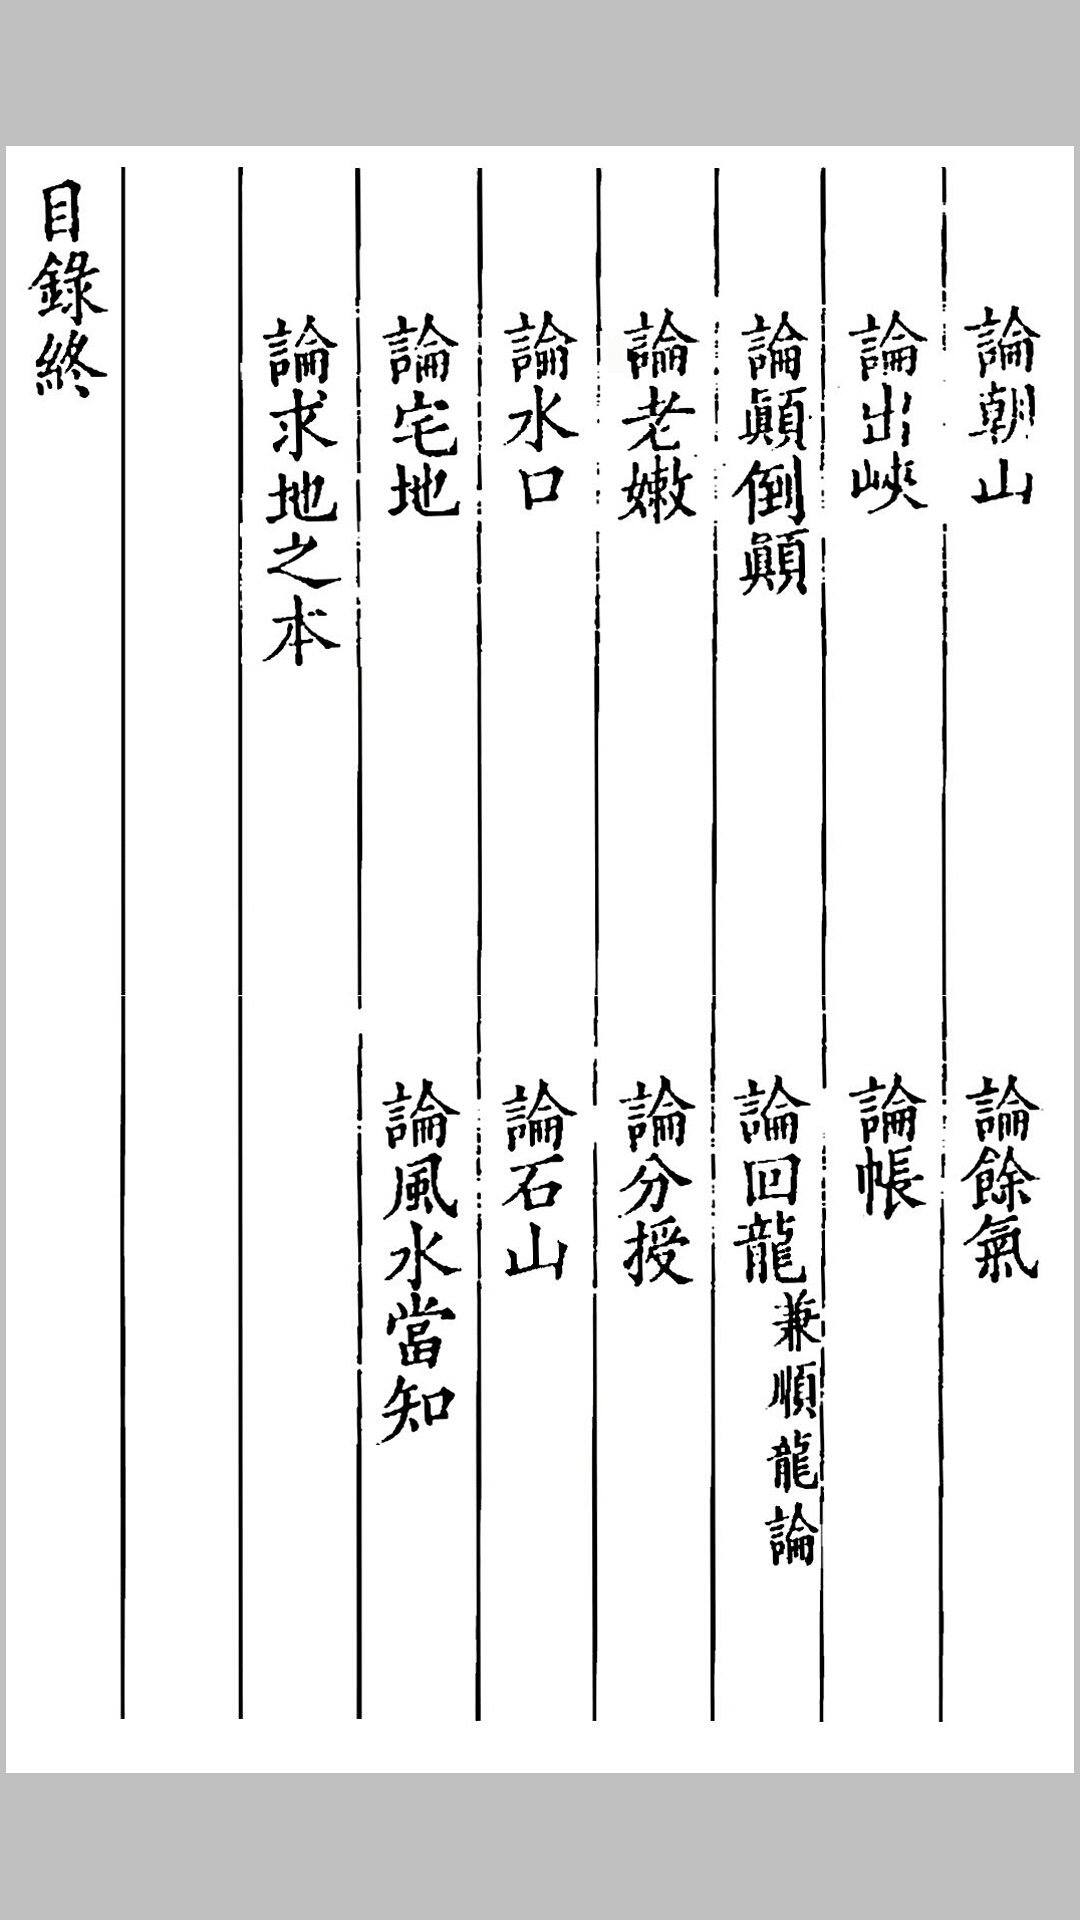 論朝山
論餘氣
論出峽
論帳
論顚倒顚
論回龍兼順龍論
論老嫩
論分授
論水口
論石山
論宅地
論風水當知
論求地之本
目錄終